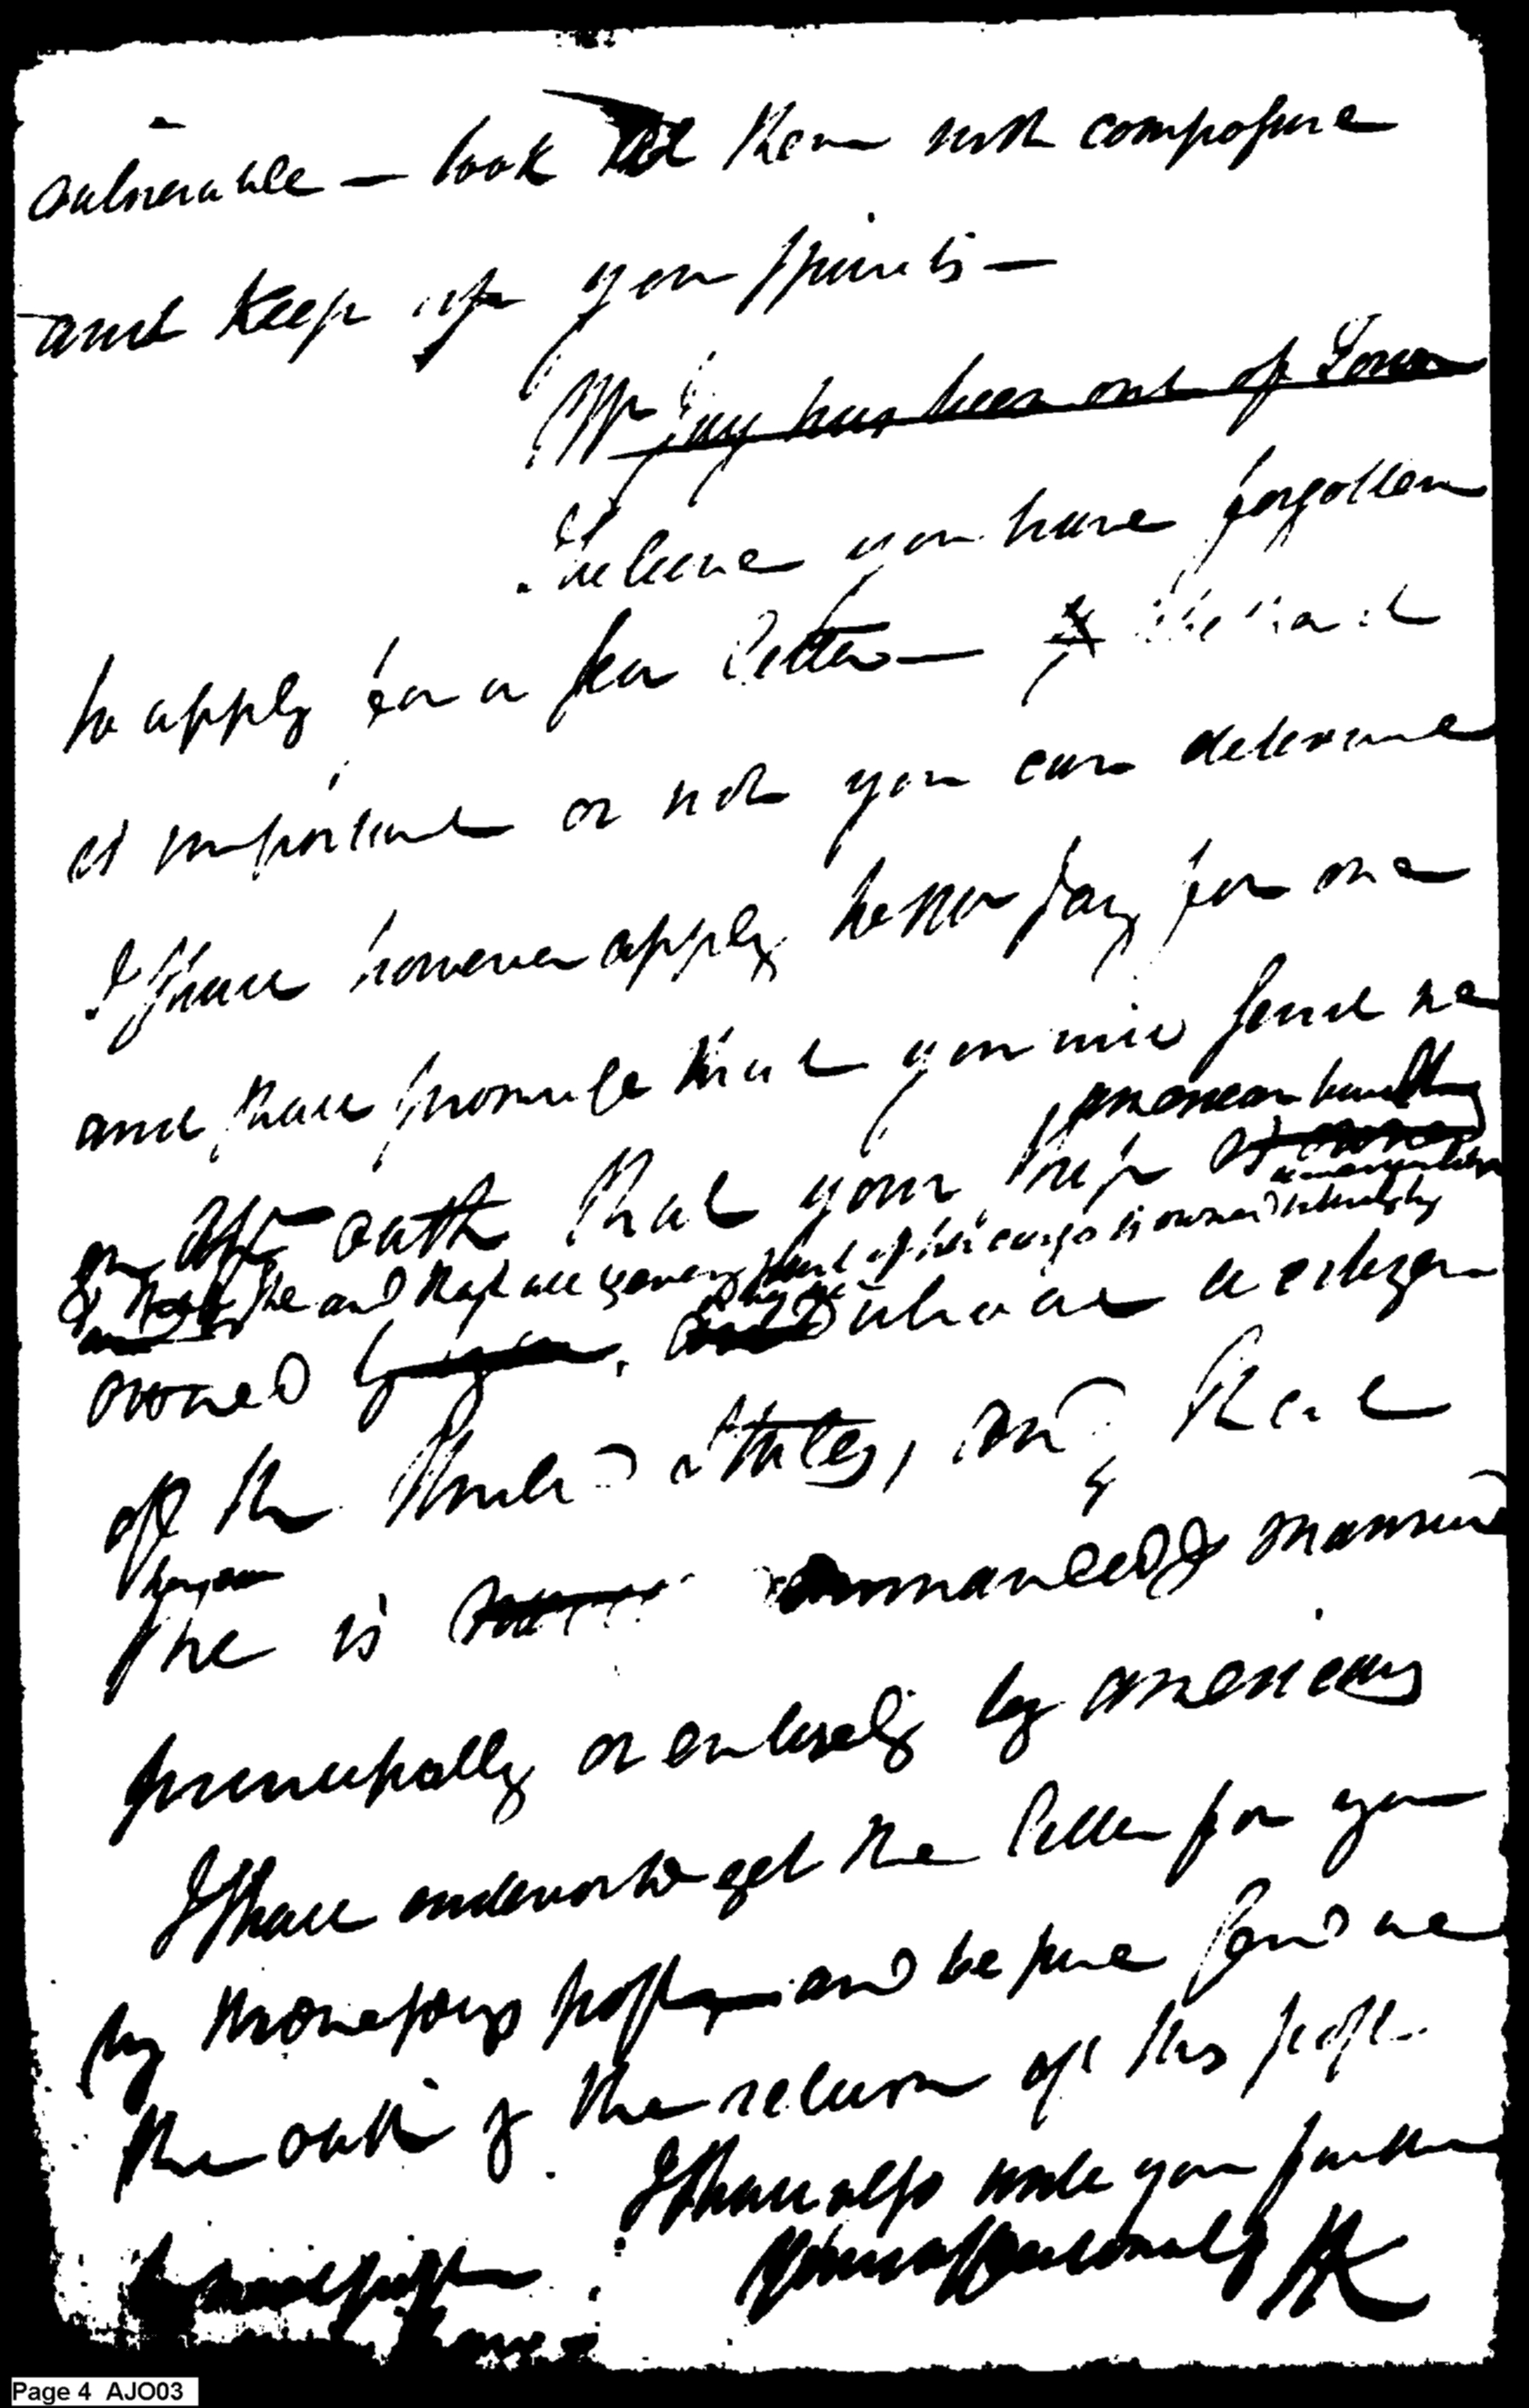 vulnerable — look at them with composure
and keep up your spirits —
Mr Jay has been out of Town
I believe you have forgotten
to apply for a sea letter —
is important or not you can determine
I shall however apply to Mr Jay for one
and shall promise that you will send me
american built
an oath that your ship
she and that all & every part of her cargo is owned
owned by you, who are a citizen
of the United States, and that
she is commanded & manned
principally or entirely by americans
I shall endeavor to get the letter for you
by tomorrows post — and be sure send me
the oath by the return of this post
I shall also write you further
Yours affectionately RK
Page 4 AJO03